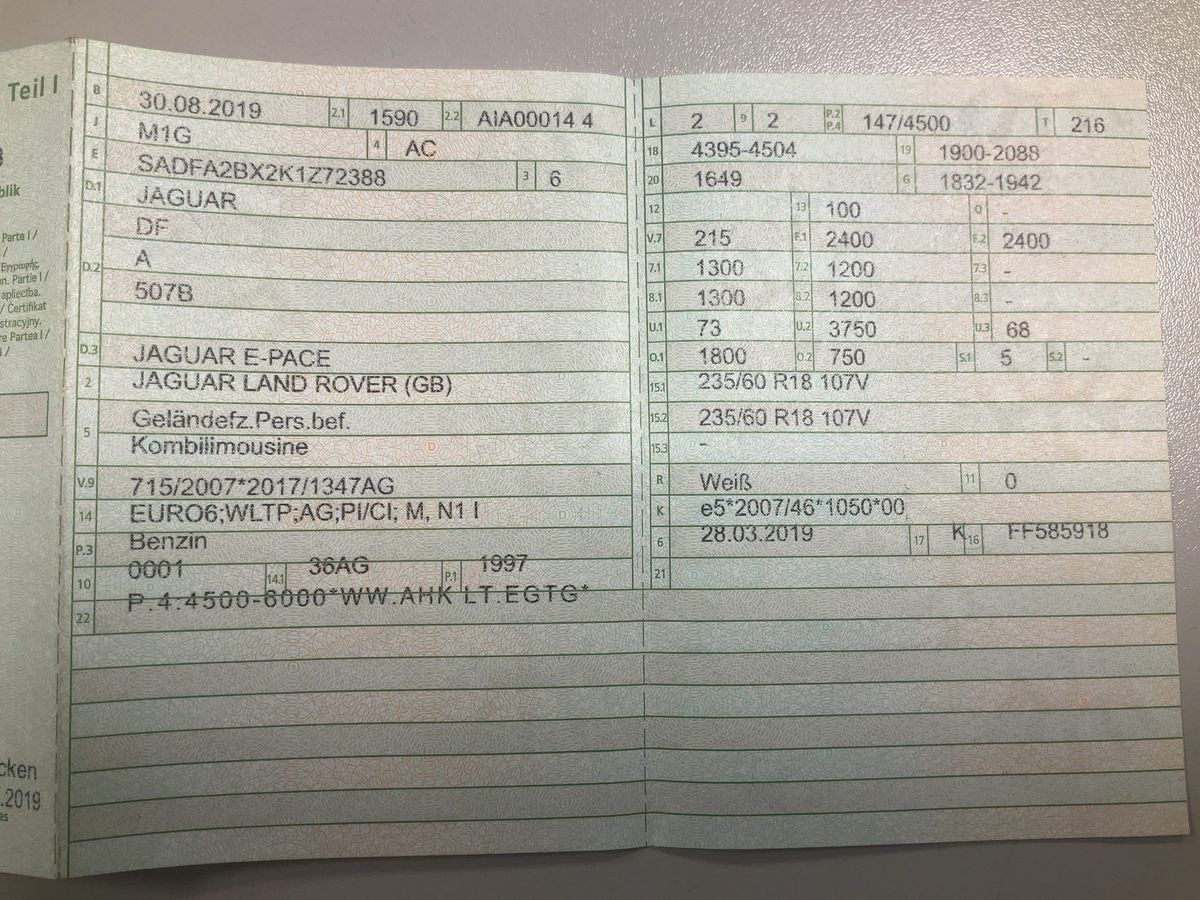 Teil I
blik
Parte I /
Εγγραφής
n. Partie I /
apliecība.
/ Certifikat
stracyjny.
re Partea I /
cken
.2019
B 30.08.2019 2.1 1590 2.2 AIA00014 4
J M1G 4 AC
E SADFA2BX2K1Z72388 3 6
D.1 JAGUAR
DF
D.2 A
507B
D.3 JAGUAR E-PACE
2 JAGUAR LAND ROVER (GB)
5 Geländefz.Pers.bef.
Kombilimousine
V.9 715/2007*2017/1347AG
14 EURO6;WLTP;AG;PI/CI; M, N1 I
P.3 Benzin
10 0001 14.1 36AG P.1 1997
22 P.4:4500-6000*WW.AHK LT.EGTG*
L 2 9 2 P.2 P.4 147/4500 T 216
18 4395-4504 19 1900-2088
20 1649 G 1832-1942
12 13 100 Q -
V.7 215 F.1 2400 F.2 2400
7.1 1300 7.2 1200 7.3 -
8.1 1300 8.2 1200 8.3 -
U.1 73 U.2 3750 U.3 68
O.1 1800 O.2 750 S.1 5 S.2 -
15.1 235/60 R18 107V
15.2 235/60 R18 107V
15.3 -
R Weiß 11 0
K e5*2007/46*1050*00
6 28.03.2019 17 K 16 FF585918
21